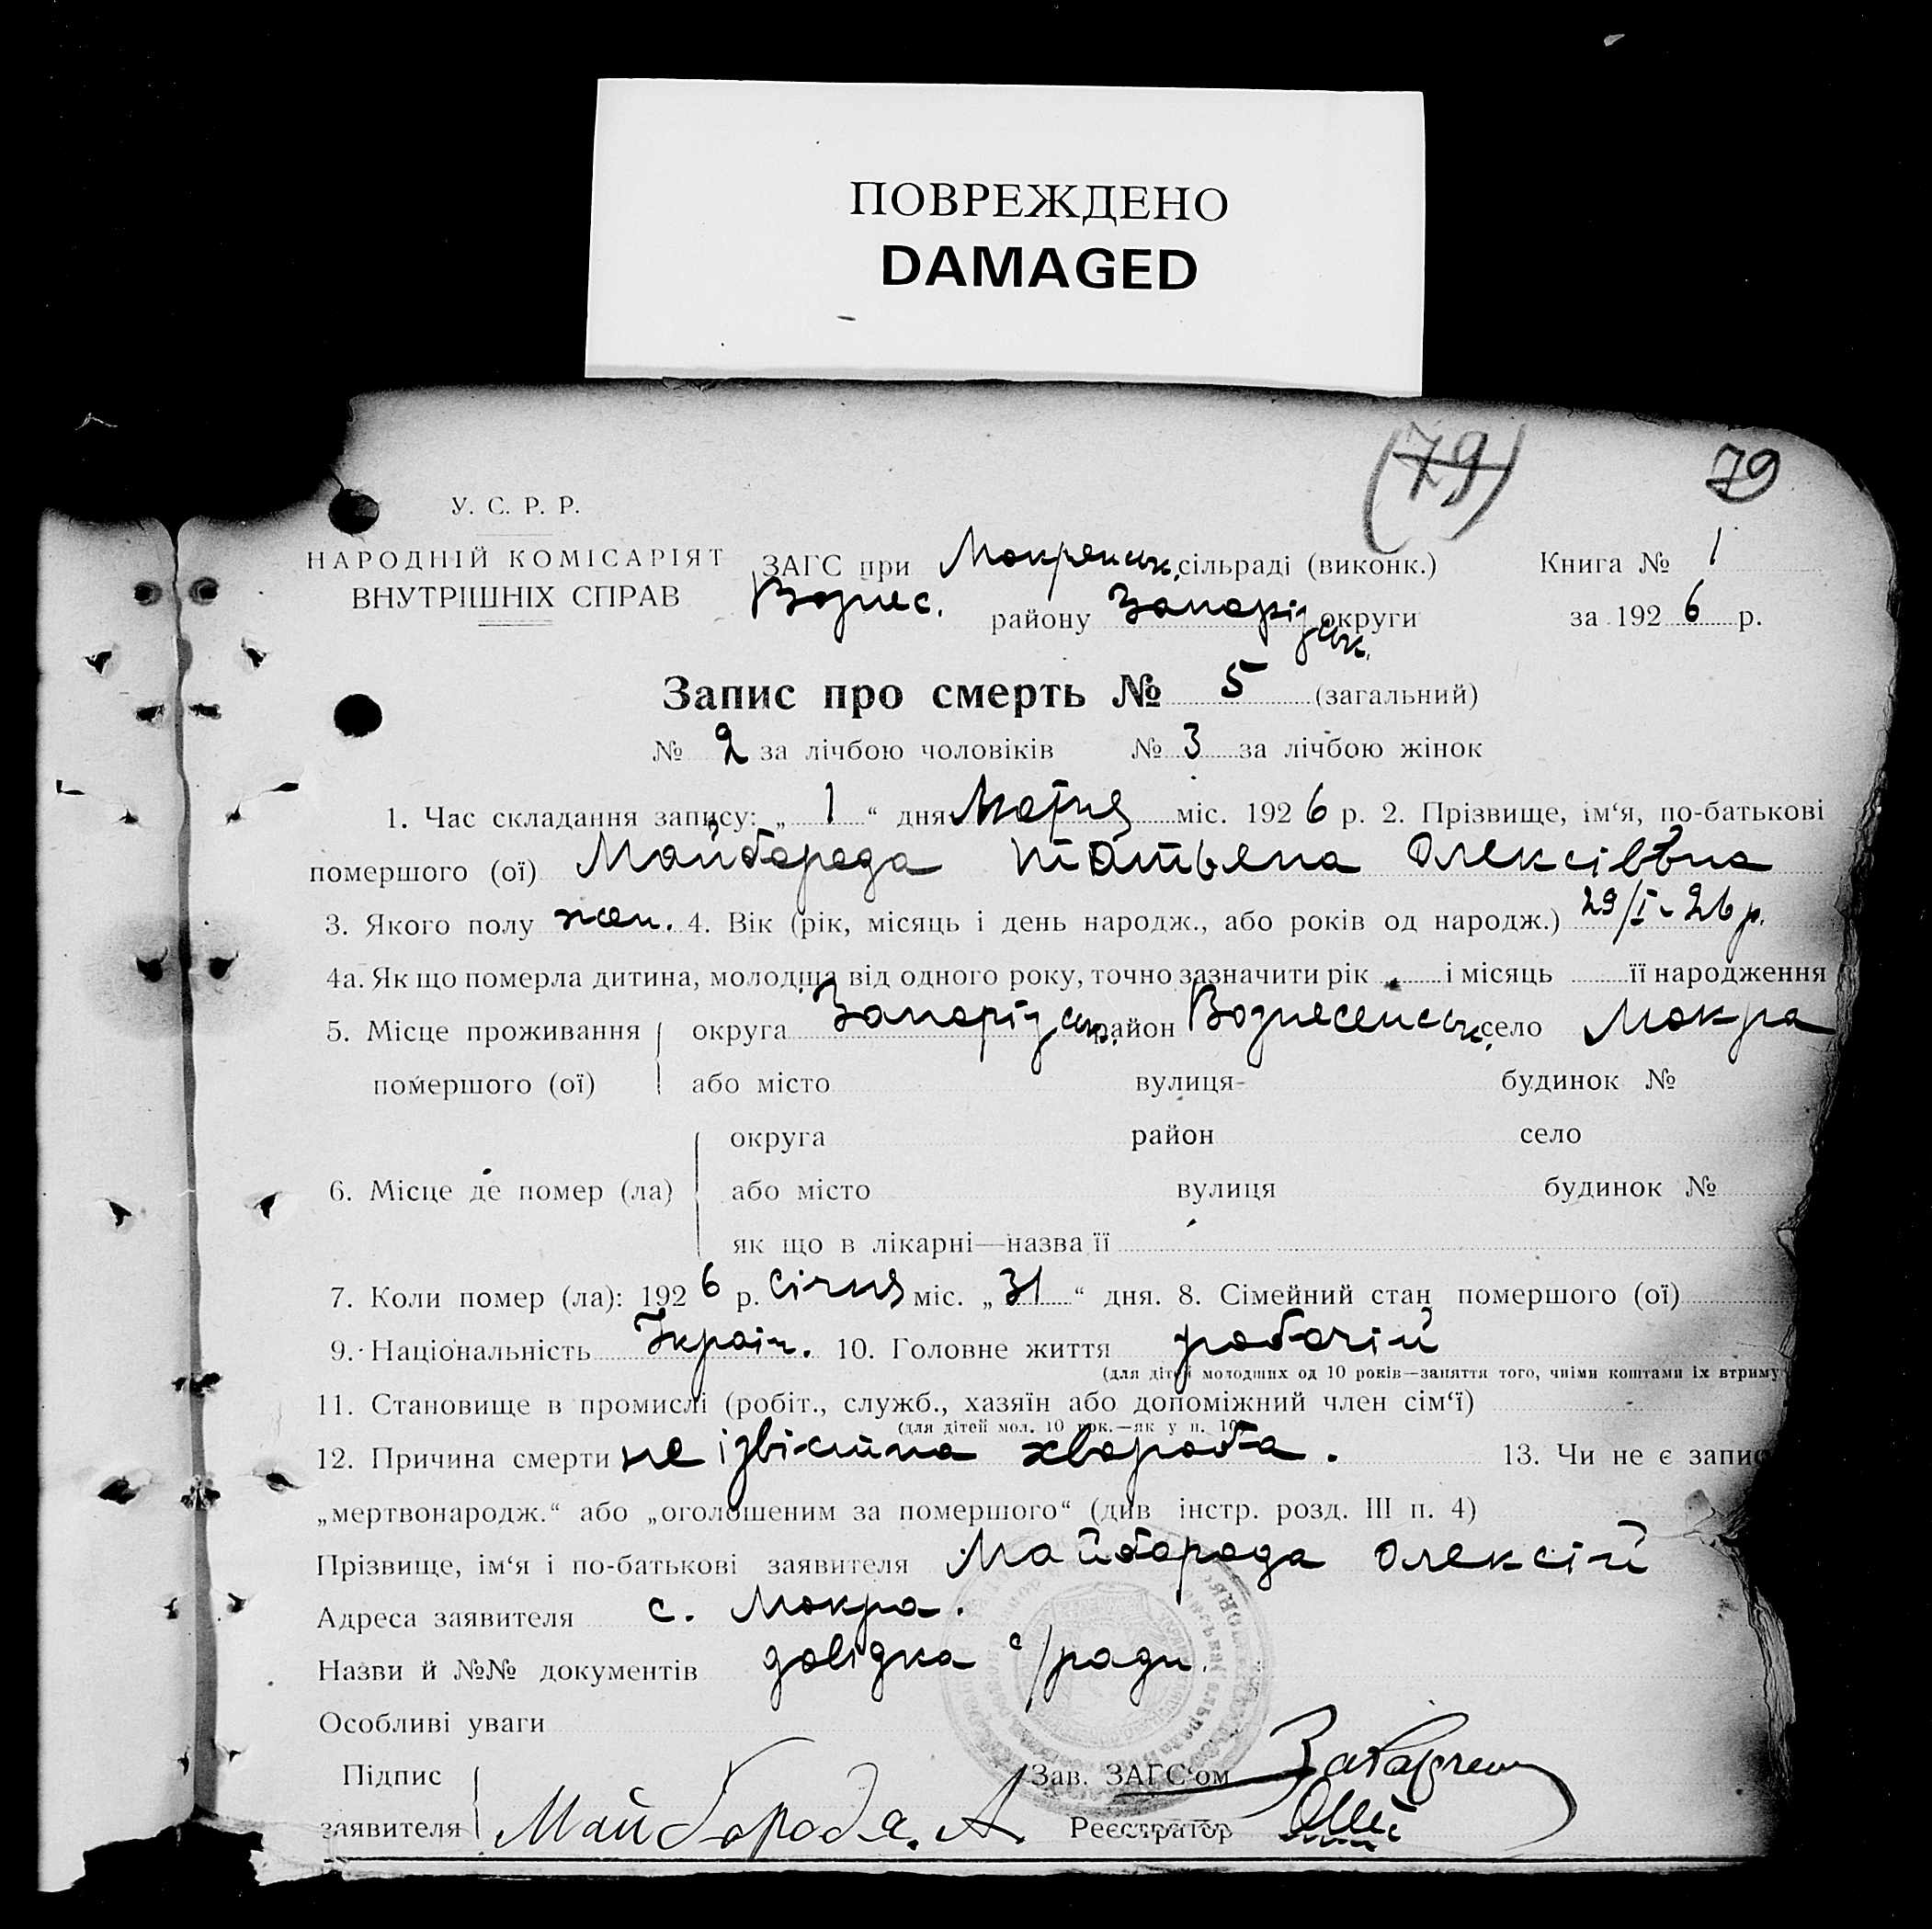 ПОВРЕЖДЕНО
DAMAGED
(79) 79
У. С. Р. Р.
НАРОДНІЙ КОМІСАРІЯТ
ВНУТРІШНІХ СПРАВ
ЗАГС при Мокрянськ. сільраді (виконк.) Книга № 1
Вознес. району Запорізьк. округи за 1926 р.
Запис про смерть № 5 (загальний)
№ 2 за лічбою чоловіків № 3 за лічбою жінок
1. Час складання запису: „ 1 “ дня міс. 1926 р. 2. Прізвище, ім‘я, по-батькові
помершого (ої) Майборода Татьяна Олексівна
3. Якого полу жен. 4. Вік (рік, місяць і день народж., або років од народж.) 29/I - 26 р.
4а. Як що померла дитина, молодша від одного року, точно зазначити рік і місяць її народження
5. Місце проживання помершого (ої) округа Запорізьк. район Вознесенськ. село Мокра
або місто вулиця будинок №
округа район село
6. Місце де помер (ла) або місто вулиця будинок №
як що в лікарні—назва її
7. Коли помер (ла): 1926 р. січня міс. „ 31 “ дня. 8. Сімейний стан помершого (ої)
9. Національність Україн. 10. Головне життя робочій
(для дітей молодших од 10 років—заняття того, чиїми коштами їх втриму
11. Становище в промислі (робіт., служб., хазяїн або допоміжний член сім‘ї)
(для дітей мол. 10 рок.—як у п. 10
12. Причина смерти не ізвістна хвороба. 13. Чи не є запис
„мертвонародж.“ або „оголошеним за помершого“ (див інстр. розд. III п. 4)
Прізвище, ім‘я і по-батькові заявителя Майборода Олексій
Адреса заявителя с. Мокра.
Назви й №№ документів довідка с/ради.
Особливі уваги
Підпис Зав. ЗАГС‘ом
заявителя Майборода. А. Реєстратор